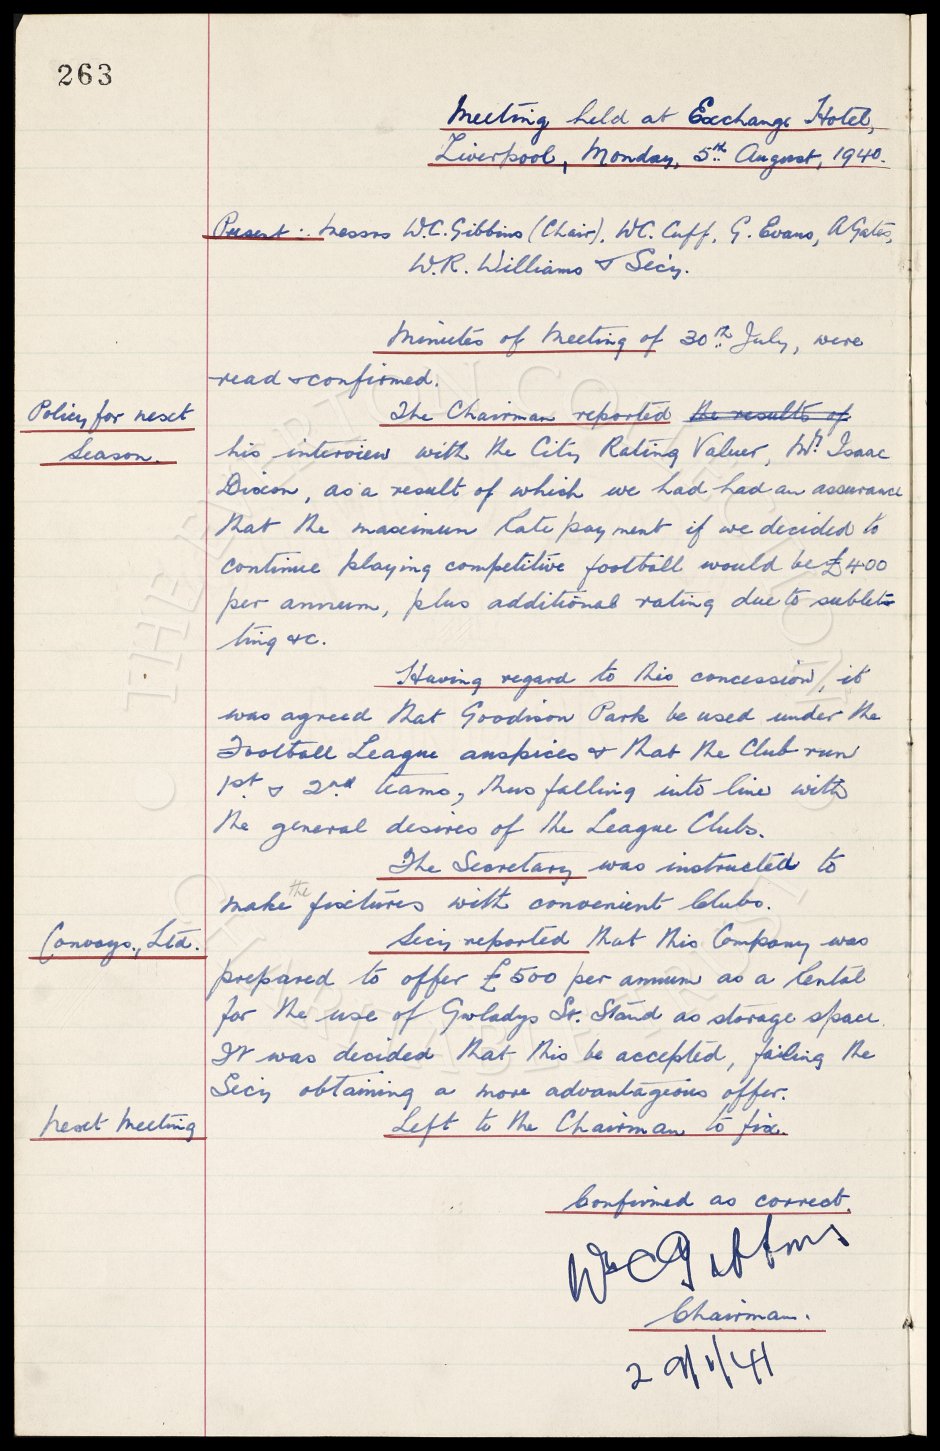 263
Meeting held at Exchange Hotel,
Liverpool, Monday, 5th August, 1940.
Present :- Messrs W.C. Gibbins (Chair), W.C. Cuff, G. Evans, A Gates,
W.R. Williams & Secy.
Minutes of Meeting of 30th July, were
read & confirmed.
Policy for next
Season.
The Chairman reported the results of
his interview with the City Rating Valuer, Mr. Isaac
Dixon, as a result of which we had had an assurance
that the maximum rate payment if we decided to
continue playing competitive football would be £400
per annum, plus additional rating due to sublet-
ting &c.
Having regard to this concession, it
was agreed that Goodison Park be used under the
Football League auspices & that the Club run
1st & 2nd teams, thus falling into line with
the general desires of the League Clubs.
The Secretary was instructed to
make the fixtures with convenient Clubs.
Convoys., Ltd.
Secy reported that this Company was
prepared to offer £500 per annum as a rental
for the use of Gwladys St. Stand as storage space.
It was decided that this be accepted, failing the
Secy obtaining a more advantageous offer.
Next Meeting
Left to the Chairman to fix.
Confirmed as correct.
Wm C Gibbins
Chairman.
29/1/41
THE EVERTON COLLECTION
CHARITABLE TRUST